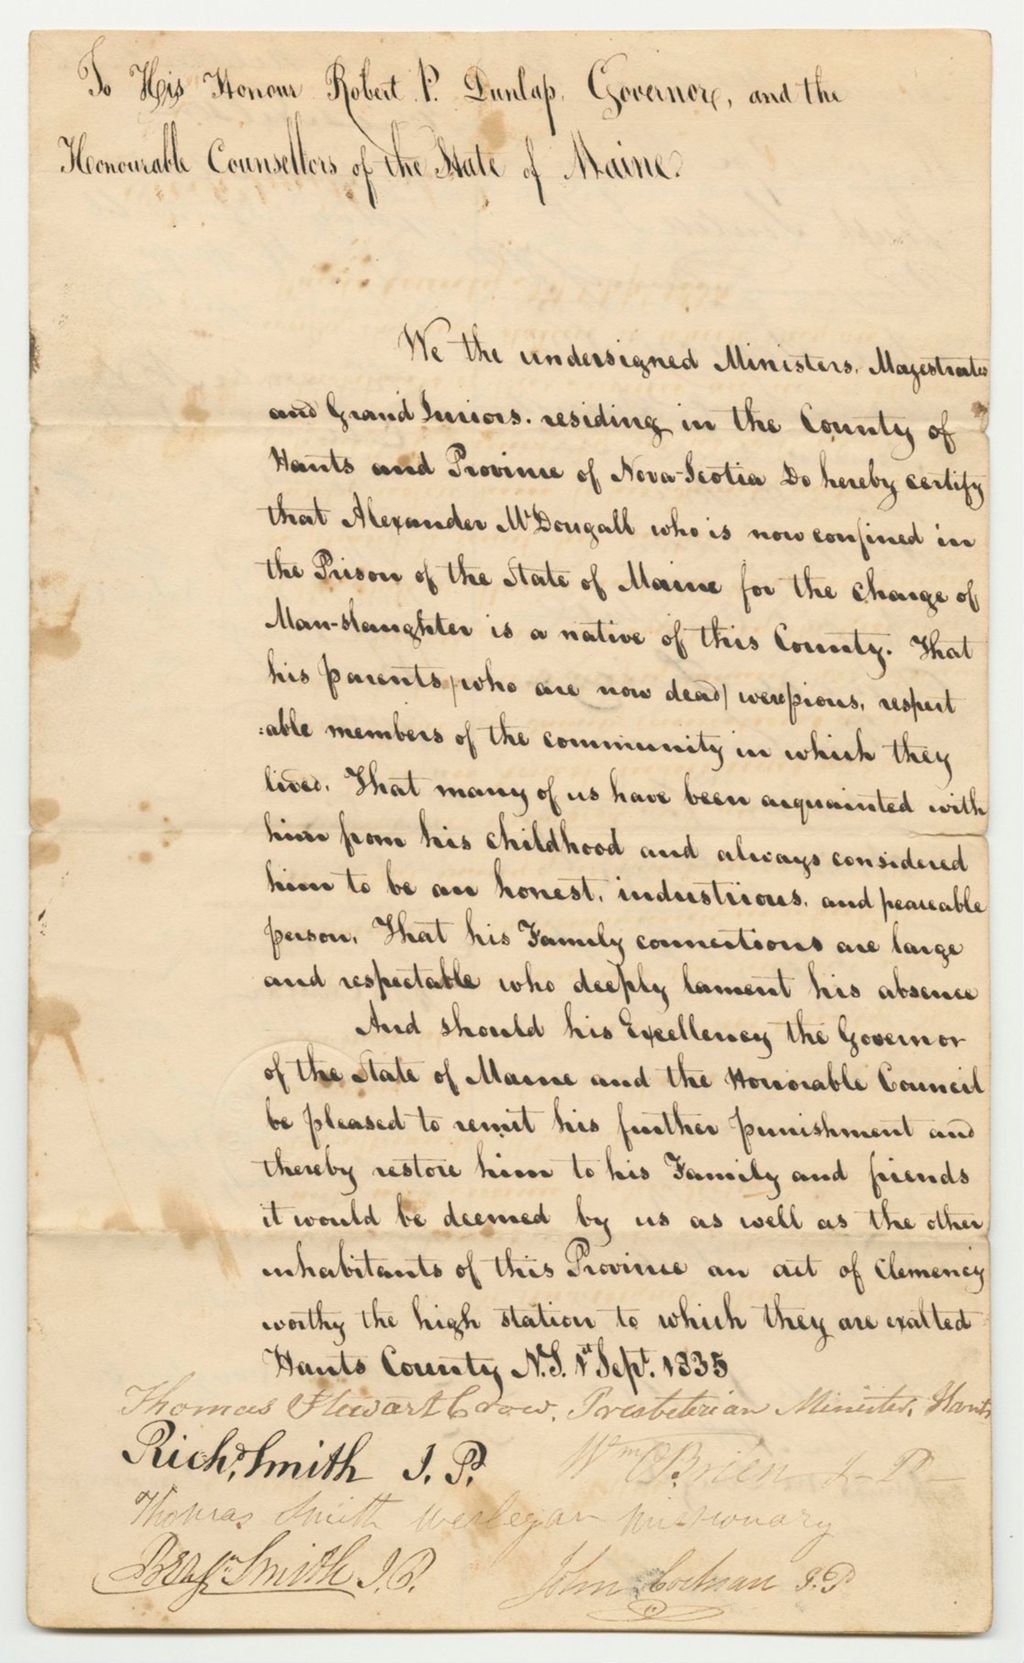 To His Honour Robert P. Dunlap, Governor, and the
Honourable Counsellors of the State of Maine.
We the undersigned Ministers, Magestrates
and Grand Juriors. residing in the County of
Hants and Province of Nova-Scotia Do hereby certify
that Alexander McDougall who is now confined in
the Prison of the State of Maine for the charge of
Man-slaughter is a native of this County. That
his parents (who are now dead) were pious, respect
:able members of the community in which they
lived. That many of us have been acquainted with
him from his childhood and always considered
him to be an honest, industrious, and peaceable
person. That his Family connections are large
and respectable who deeply lament his absence
And should his Excellency the Governor
of the State of Maine and the Honorable Council
be pleased to remit his further punishment and
thereby restore him to his Family and friends
it would be deemed by us as well as the other
inhabitants of this Province an act of Clemency
worthy the high station to which they are exalted
Hants County N.S. 1st Sept. 1835
Thomas Stewart Crow, Presbeterian Minister, Hants
Richd. Smith J. P. Wm O'Brien J-P
Thomas Smith Wesleyan Missionary
Benjn Smith J.P. John Cochran J.P